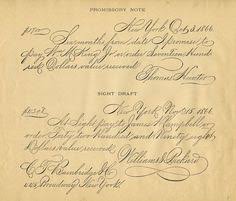 PROMISSORY NOTE
$1700. New York Oct 3, 1866.
Six months from date I promise to
pay Wm McKing Jr or order Seventeen Hund
red Dollars value received
Thomas Hunter
SIGHT DRAFT
New York Nov 15, 1866.
At Sight pay to James Campbell or
order Sixty two Hundred and Ninety eight
Dollars value received
William Packard
C. T. Bainbridge & Co
Broadway New York.